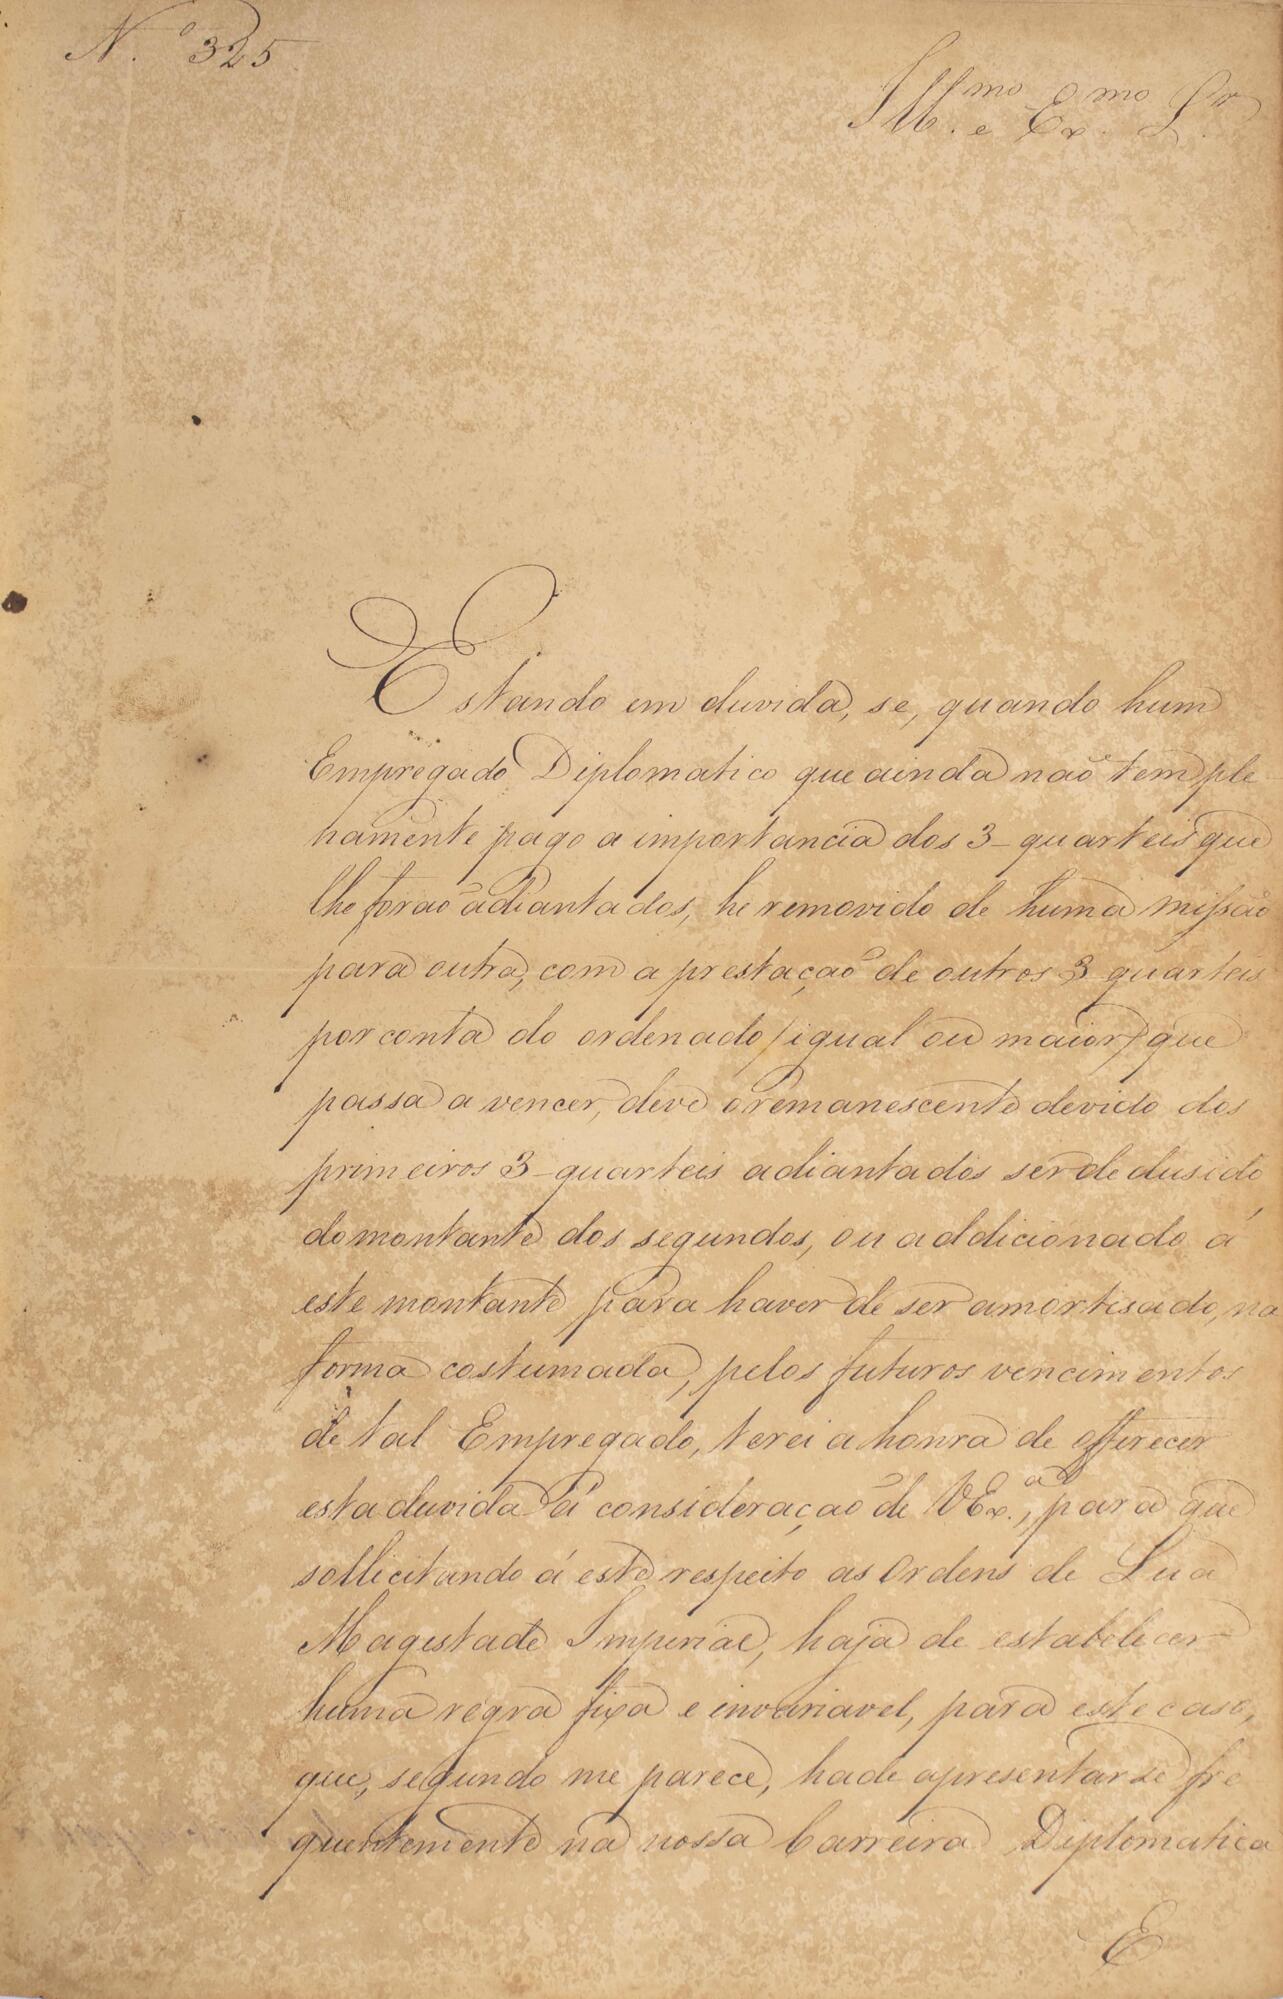 N.º 325
Ill.mo e Ex.mo Sr
Estando em duvida, se, quando hum
Empregado Diplomatico que ainda naõ tem ple
namente pago a importancia dos 3 quarteis que
lhe foraõ adiantados, he removido de huma missaõ
para outra, com a prestaçaõ de outros 3 quarteis
por conta do ordenado /igual ou maior/ que
passa a vencer, deve o remanescente devido dos
primeiros 3 quarteis adiantados ser dedusido
do montante dos segundos, ou addicionado á
este montante para haver de ser amortisado, na
forma costumada, pelos futuros vencimentos
de tal Empregado, terei a honra de offerecer
esta duvida á consideraçaõ de VEx.a, para que
sollicitando á este respeito as Ordens de Sua
Magestade Imperial, haja de estabelecer
huma regra fixa e invariavel, para este caso,
que, segundo me parece, hade apresentar se fre
quentemente na nossa Carreira Diplomatica
E